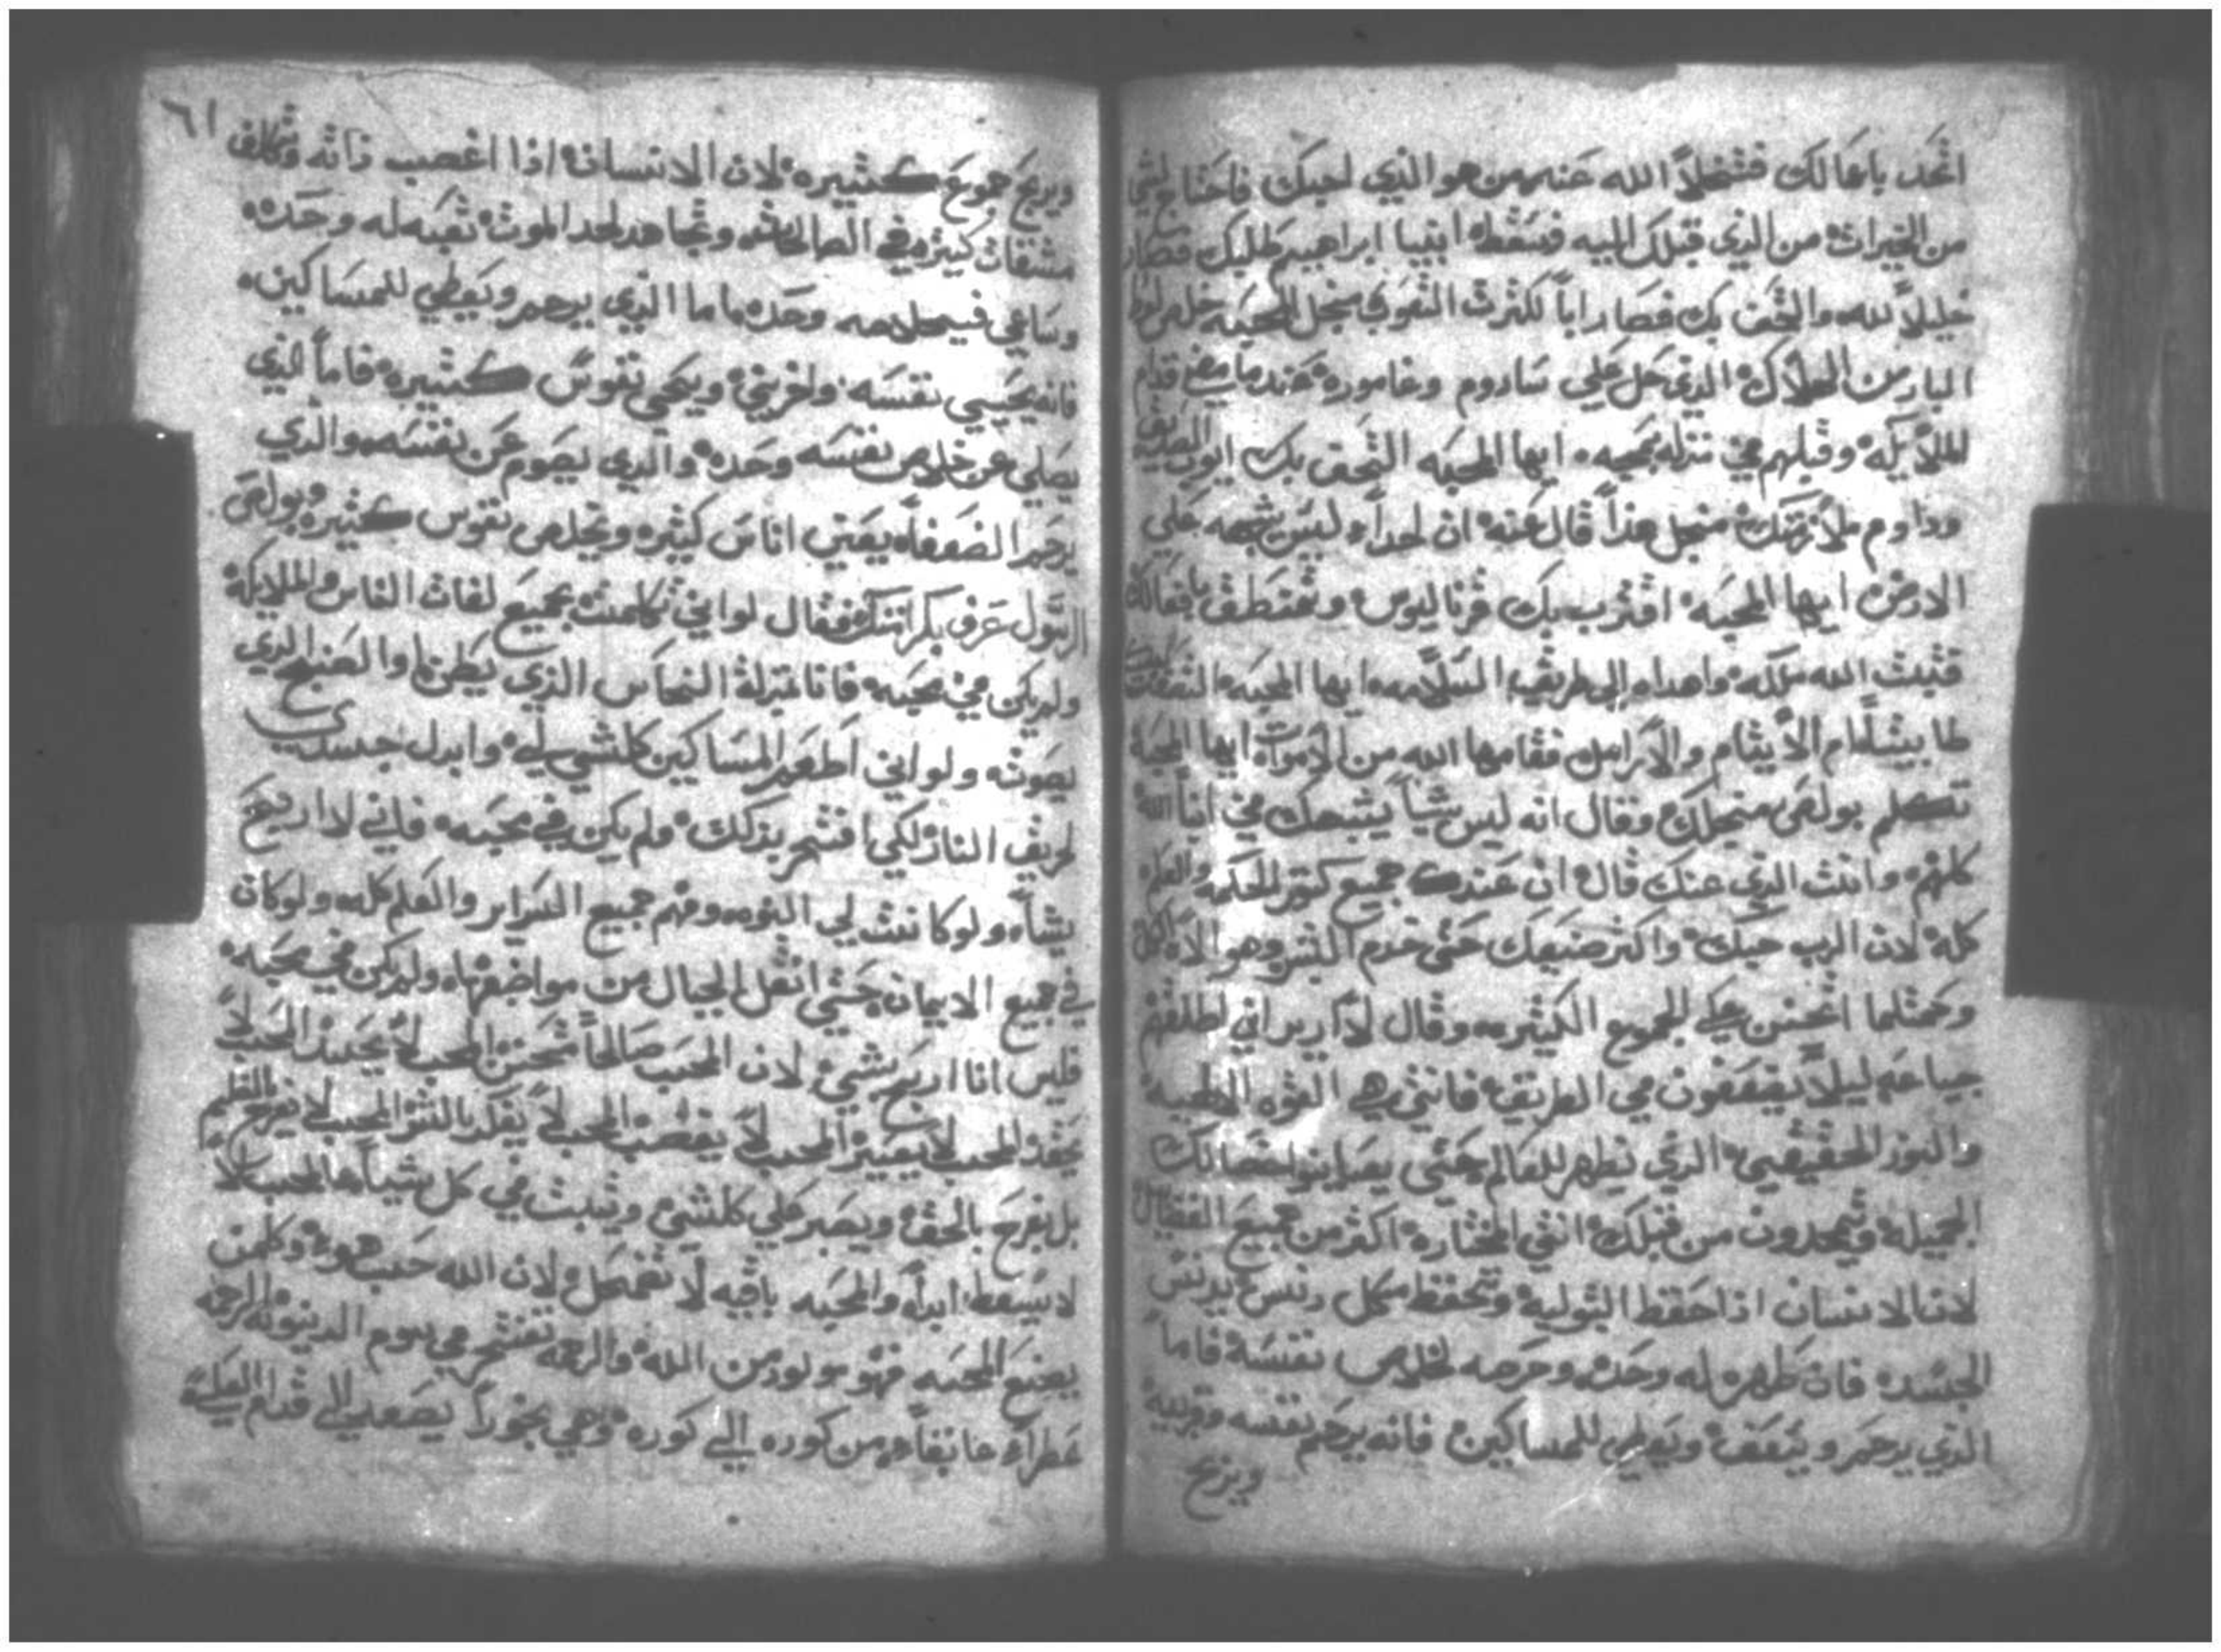 اتحد باعمالك فتخلا الله عنه من هو الذي احبك فاحتاج لشيا
من الخيرات من الذي قبلك اليه فسقط ابينا ابراهيم طلبك فصار
خليلاً لله والتحف بك فصار اباً لكثرت الشعوب منجل المحبه خلص لوط
البار من الهلاك الذي حل علي سادوم وغاموره عندما مضي قدام
للملايكه وقبلهم في منزله بمحبه ايها المحبه التحق بك ايوب الصديق
وداوم ملازمتك منجل هذا قال عنه ان احداً ليس يشبهه علي
الارض ايها المحبه اقترب بك قرناليوس وتمنطق بافعالك
فثبت الله ملكه واهداه الي طريق السلامه ايها المحبه التفتت
طابيثا الايتام والارامل فقامها الله من الاموات ايها المحبه
تكلم بولص منجلك وقال انه ليس شياً يشبهك في
كلهم وانت الذي عنك قال ان عندك جميع كنوز الحكمه والعلم
كله لان الرب حبك واكثر صنيعك حتي خدم البشر وهو الاه الكل
وحمثلما اتحنن علي الجموع الكثيره وقال لا اريد اني اطلقهم
جياعه ليلا يضعفون في الطريق فانتي هي القوه العظيمه
والنور الحقيقي الذي تظهر للعالم حتي يعاينوا خصالك
الجميله ويمجدون من قبلك انتي المختاره اكثر من جميع الفضايل
لان الانسان اذا حفظ البتوليه وتحفظ من كل دنس يدنس
الجسد فان طهره له وحده وحرصه لخلاص نفسه فاما
الذي يرحم ويتعفف ويعطي للمساكين فانه يرحم نفسه وقريبه
ويربح
٦١
ويربح جموع كثيره لان الانسان اذا اغصب ذاته وتكلف
مشقات كثيره في الصالحات وتجاهد لحد الموت تعبه له وحده
وساعي في خلاصه وحده اما الذي يرحم ويعطي للمساكين
فانه يحيي نفسه واخريني ويحيي نفوس كثيره فاما الذي
يصلي عن خلاص نفسه وحده والذي يصوم عن نفسه والذي
يرحم الضعفاء يعني اناس كثيره وتخلص نفوس كثيره وبولص
الرسول عرف بكرامتك فقال لو اني تكلمت بجميع لغات الناس والملايكه
ولم يكن في محبه فانا بمنزلة النحاس الذي يطن او الصنج الذي
يصوت ولو اني اطعم المساكين كلشي لي وابدل جسدي
لحريق النار لكي افتخر بذلك ولم يكن في محبه فاني لا اربح
شياً ولو كانت لي النبوه وفهم جميع السراير والعلم كله ولو كان
في جميع الايمان حتي انقل الجبال من مواضعها ولم يكن في محبه
فليس انا اربح بشي لان المحب صالحاً متحنن المحب لا يحسد المحب لا
يحقد المحب لا يعير المحب لا يغضب المحب لا يفكر بالشر المحب لا يفرح بالظلم
بل يفرح بالحق ويصبر علي كلشي ويثبت في كل شياً المحب لا
لا يسقط ابداً والمحبه باقيه لا تضمحل لان الله حب هو وكلمن
يصنع المحبه فهو مولود من الله والرحمه تفتخر في يوم الدينونه الرحمه
عطراً عابقاً من كوره الي كوره وهي بخوراً يصعد الي قدام العلي